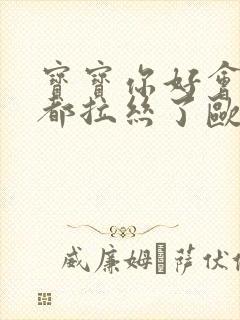 寶寶你好會
都拉絲了歐
威廉姆·萨伏